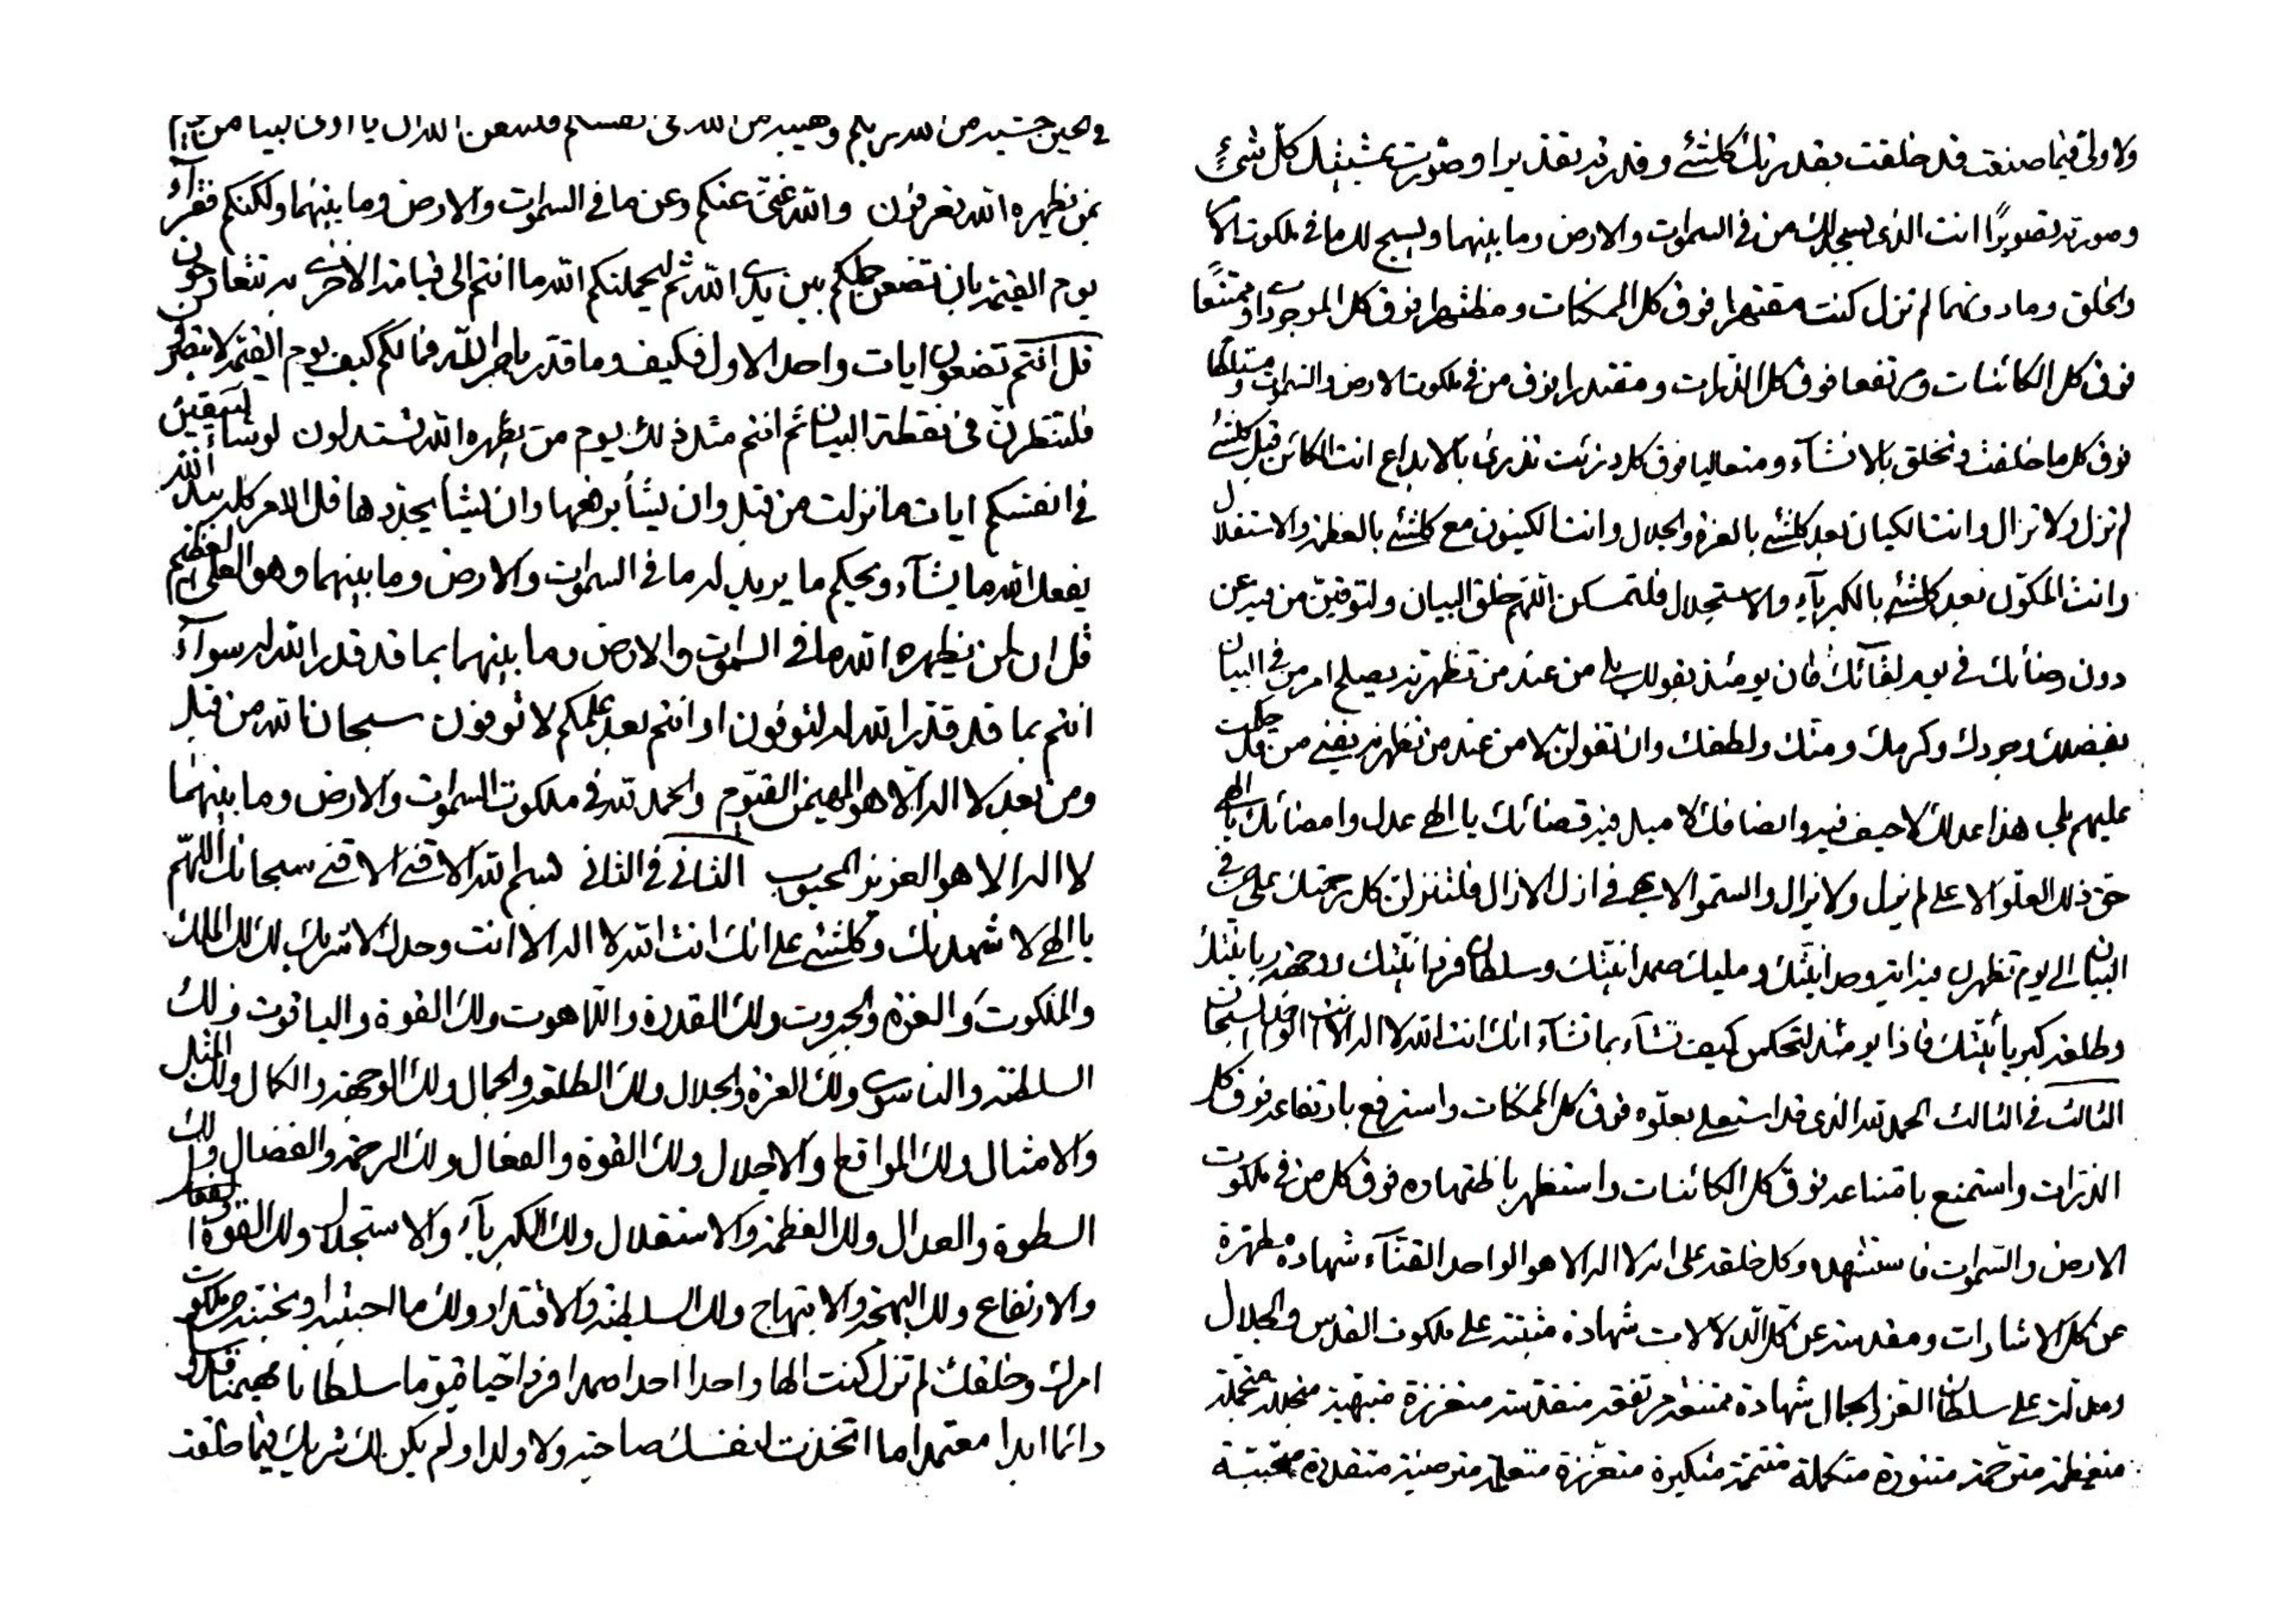 بمن نظهره الله تعرفون والله غني عنكم وعن ما في السموات والارض وما بينهما ولكنكم فقرآء
يوم القيمة بان تضعن بين يدي الله ثم ليحملنكم الله ما انتم الى قيامة الاخرى به تتعارجون
قل انكم تضعون ايات واحد الاول فكيف وما قدر بامر الله فما لكم كيف يوم القيمة لا تبصرون
فلتنظرن في نقطة البيان ثم انتم مثل ذلك يوم من يظهره الله تستدلون لو شآء الله ليبقين
في انفسكم ايات ما نزلت من قبل وان يشأ يرفعها وان يشأ يجددها قل الامر كله بيد الله
يفعل الله ما يشآء ويحكم ما يريد له ما في السموات والارض وما بينهما وهو العلي العظيم
قل ان لمن يظهره الله ما في السموات والارض وما بينهما بما قد قدر الله له سوآء
انتم بما قد قدر الله له لتوفون او انتم بعد علمكم لا توفون سبحان الله من قبل
ومن بعد لا اله الا هو المهيمن القيوم والحمد لله في ملكوت السموات والارض وما بينهما
لا اله الا هو العزيز المحبوب الثاني في الثاني بسم الله الاقنى الاقنى سبحانك اللهم
يا الهي لاشهدنك وكلشئ على انك انت الله لا اله الا انت وحدك لا شريك لك لك الملك
والملكوت ولك العزة والجبروت ولك القدرة واللاهوت ولك القوة والياقوت ولك
السلطنة والناسوت ولك العزة والجلال ولك الطلعة والجمال ولك الوجهة والكمال ولك المثل
والامثال ولك المواقع والاجلال ولك القوة والفعال ولك الرحمة والفضال ولك
السطوة والعدال ولك العظمة والاستقلال ولك الكبريآء والاستجلال ولك القوة
والارتفاع ولك البهجة والابتهاج ولك السلطنة والاقتدار ولك ما احببته او تحبنه من ملكوت
امرك وخلقك لم تزل كنت الها واحدا احدا صمدا فردا حيا قيوما سلطانا مهيمنا قدوسا
دائما ابدا معتمدا ما اتخذت لنفسك صاحبة ولا ولدا ولم يكن لك شريك فيما خلقت
ولا ولي فيما صنعت قد خلقت بقدرتك كلشئ وقدرته تقديرا وصورت بمشيتك كل شئ
وصورته تصويرًا انت الذي يسجد لك من في السموات والارض وما بينهما ويسبح لك ما في ملكوت الامر
والخلق وما دونهما لم تزل كنت مقتهرا فوق كل الممكنات ومظتهرا فوق كل الموجودات وممتنعا
فوق كل الكائنات ومرتفعا فوق كل الذرات ومقتدرا فوق من في ملكوت الارض والسموات
فوق كل ما خلقت وتخلق بالانشآء ومتعاليا فوق كل ما ذرئت تذرئ بالابداع انت الكائن قبل كلشئ
لم تزل ولا تزال وانت الكيان بعد كلشئ بالعزة والجلال وانت الكينون مع كلشئ بالعظمة والاستقلال
وانت المكون بعد كلشئ بالكبريآء والاستجلال فلتمسكن اللهم خلق البيان ولتوقين من فيه عن
دون رضائك في يوم لقآئك فان يومئذ بقولك بلى من عند من تظهرنه يصلح امر من في البيان
بفضلك وجودك وكرمك ومنك ولطفك وان تقولن لا من عند من تظهرنه يفنى من قد حكمت
عليهم بلى هذا عدلك لا حيف فيه وانصافك لا ميل فيه قضائك يا الهي عدل وامضائك يا الهي
حق ذلك العلو الاعلى لم يزل ولا يزال والسمو الابهى في ازل الازال فلتنزلن كل رحمتك على من في
البيان الى يوم تظهرن فيه ذاتية وحدانيتك ومليك صمدانيتك وسلطان فردانيتك ووجهة ربانيتك
وطلعة كبريائيتك فاذا يومئذ لتحكمن كيف تشآء بما تشآء انك انت الله لا اله الا انت الواحد السبحان
الثالث في الثالث الحمد لله الذي قد استعلى بعلوه فوق كل الممكنات واسترفع بارتفاعه فوق كل
الذرات واستمنع بامتناعه فوق كل الكائنات واستظهر باظتهاره فوق كل من في ملكوت
الارض والسموات فاستشهده وكل خلقه على انه لا اله الا هو الواحد القنآء شهادة مطهرة
عن كل الاشارات ومقدسة عن كل الدلالات شهادة مثبتة على ملكوت القدس والجلال
ومدلة على سلطان العز والجمال شهادة ممتنعة مرتفعة متقدسة متعززة مبتهية متجللة متجملة
متعظمة مترحمة متنورة متكملة متكبرة متعززة متعلمة مترضية متقدرة متحببة